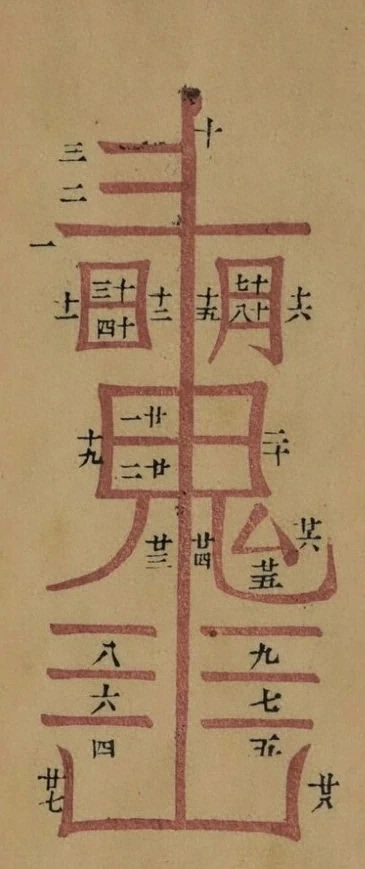 十
三
二
一
日月
十一
十三
十四
十二
十五
十七
十八
十六
鬼
十九
廿一
廿二
二十
廿三
廿四
廿五
廿六
八
九
六
七
四
五
廿七
廿八